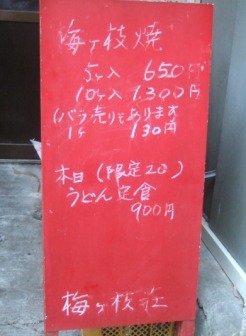 梅ヶ枝焼
5ヶ入 650円
10ヶ入 1.300円
(バラ売りもあります
1ヶ 130円
本日(限定20)
うどん定食
900円
梅ヶ枝荘